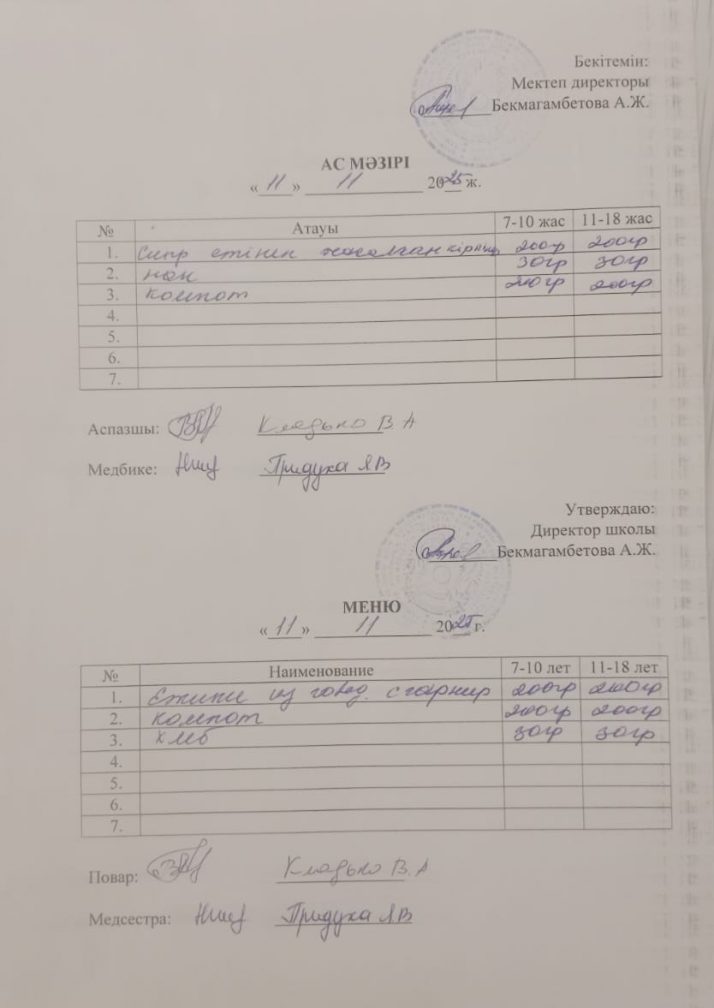 Бекітемін:
Мектеп директоры
Бекмагамбетова А.Ж.
АС МӘЗІРІ
« 11 » 11 2025 ж.
№ Атауы 7-10 жас 11-18 жас
1. Сиыр етінен жасалған 200гр 200гр
2. нан 30гр 30гр
3. компот 200гр 200гр
4.
5.
6.
7.
Аспазшы: Кладько В А
Медбике: Придуха Я В
Утверждаю:
Директор школы
Бекмагамбетова А.Ж.
МЕНЮ
« 11 » 11 2025 г.
№ Наименование 7-10 лет 11-18 лет
1. из говяд. с гарнир 200гр 200гр
2. компот 200гр 200гр
3. хлеб 30гр 30гр
4.
5.
6.
7.
Повар: Кладько В. А
Медсестра: Придуха Я В